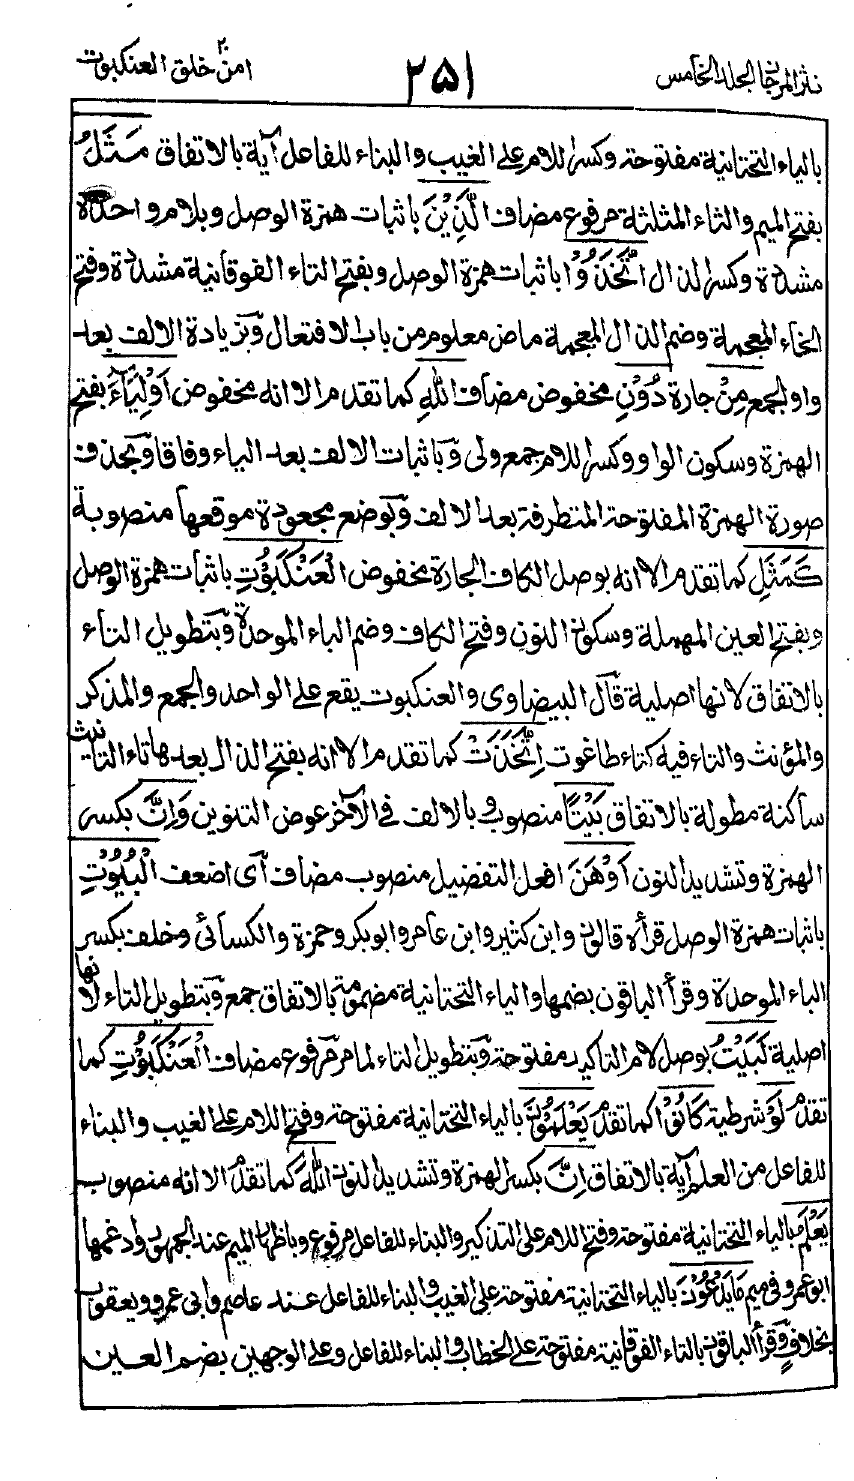 نثر المرجان الجلد الخامس ٢٥١ امن خلق ٢٠ العنكبوت
بالياء التحتانية مفتوحة وكسر اللام على الغيب والبناء للفاعل آية بالاتفاق مَثَلُ
بفتح الميم والثاء المثلثة مرفوع مضاف الَّذِيْنَ باثبات همزة الوصل وبلام واحدة
مشددة وكسر الذال اتَّخَذُوْا باثبات همزة الوصل وبفتح التاء الفوقانية مشددة وفتح
الخاء المعجمة وضم الذال المعجمة ماض معلوم من باب الافتعال وبزيادة الالف بعد
واو الجمع مِنْ جارة دُوْنِ مخفوض مضاف اللهِ كما تقدم الا انه مخفوض اَوْلِيَآءَ بفتح
الهمزة وسكون الواو وكسر اللام جمع ولى وباثبات الالف بعد الياء وفاقا وبحذف
صورة الهمزة المفتوحة المتطرفة بعد الالف وبوضع مجعودة موقعها منصوبة
كَمَثَلِ كما تقدم الا انه بوصل الكاف الجارة مخفوض الْعَنْكَبُوْتِ باثبات همزة الوصل
وبفتح العين المهملة وسكون النون وفتح الكاف وضم الباء الموحدة وبتطويل التاء
بالاتفاق لانها اصلية قال البيضاوى والعنكبوت يقع على الواحد والجمع والمذكر
والمؤنث والتاء فيه كتاء طاغوت اِتَّخَذَتْ كما تقدم الا انه بفتح الذال بعدها تاء التانيث
ساكنة مطولة بالاتفاق بَيْتًا منصوب وبالالف فى الآخر عوض التنوين وَاِنَّ بكسر
الهمزة وتشديد النون اَوْهَنَ افعل التفضيل منصوب مضاف اى اضعف الْبُيُوْتِ
باثبات همزة الوصل قرأه قالون وابن كثير وابن عامر وابو بكر وحمزة والكسائى وخلف بكسر
الباء الموحدة وقرأ الباقون بضمها والياء التحتانية مضمومة بالاتفاق جمع وبتطويل التاء لانها
اصلية لَبَيْتُ بوصل لام التاكيد مفتوحة وبتطويل التاء لما مر مرفوع مضاف الْعَنْكَبُوْتِ كما
تقدم لَوْ شرطية كَانُوْا كما تقدم يَعْلَمُوْنَ بالياء التحتانية مفتوحة وفتح اللام على الغيب والبناء
للفاعل من العلم آية بالاتفاق اِنَّ بكسر الهمزة وتشديد النون اللهَ كما تقدم الا انه منصوب
يَعْلَمُ بالياء التحتانية مفتوحة وفتح اللام على التذكير والبناء للفاعل مرفوع وباظهار الميم عند الجمهور وادغمها
ابو عمرو فى ميم مَا يَدْعُوْنَ بالياء التحتانية مفتوحة على الغيب والبناء للفاعل عند عاصم وابى عمرو ويعقوب
بخلاف وقرأ الباقون بالتاء الفوقانية مفتوحة على الخطاب والبناء للفاعل وعلى الوجهين بضم العين